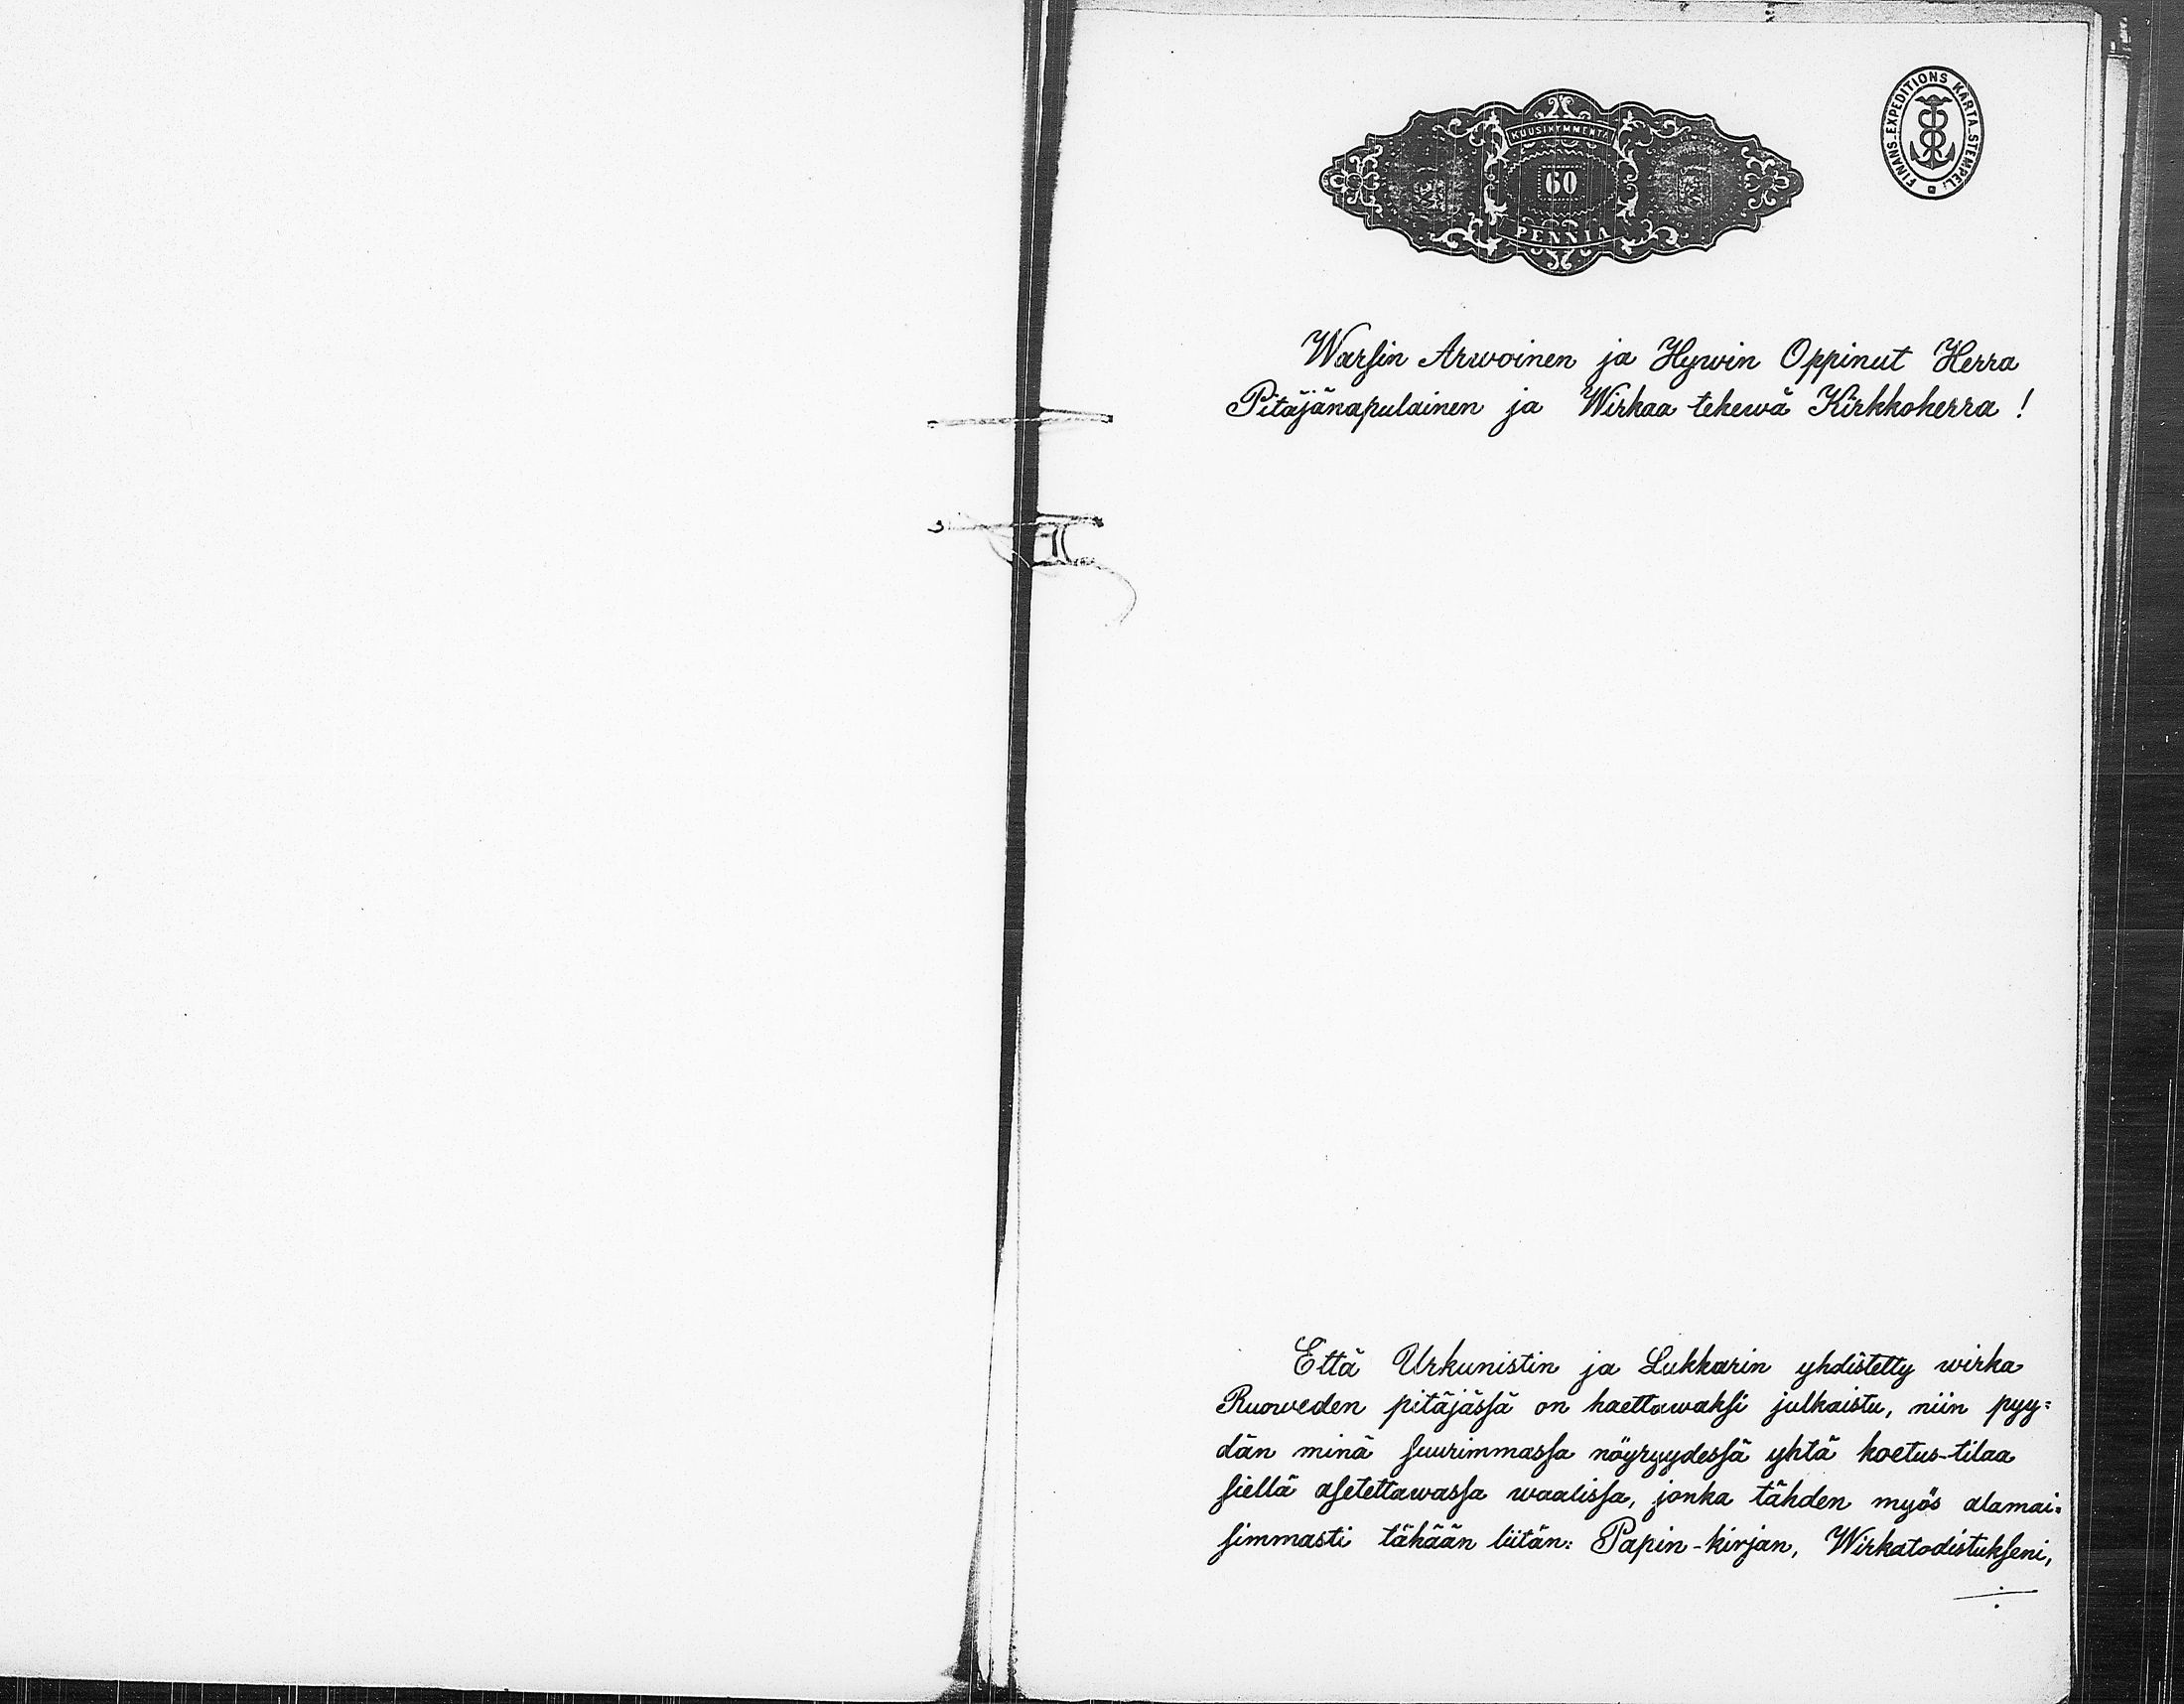 KUUSIKYMMENTÄ
60
PENNIÄ
FINANS-EXPEDITIONS KARTA-STEMPEL:
Warsin Arwoinen ja Hywin Oppinut Herra
Pitäjänapulainen ja Wirkaa tekewä Kirkkoherra!
Että Urkunistin ja Lukkarin yhdistetty wirka
Ruoweden pitäjässä on haettawaksi julkaistu, niin pyy=
dän minä suurimmassa nöyryydessä yhtä koetus-tilaa
siellä asetettawassa waalissa, jonka tähden myös alamai=
simmasti tähään liitän: Papin-kirjan, Wirkatodistukseni,